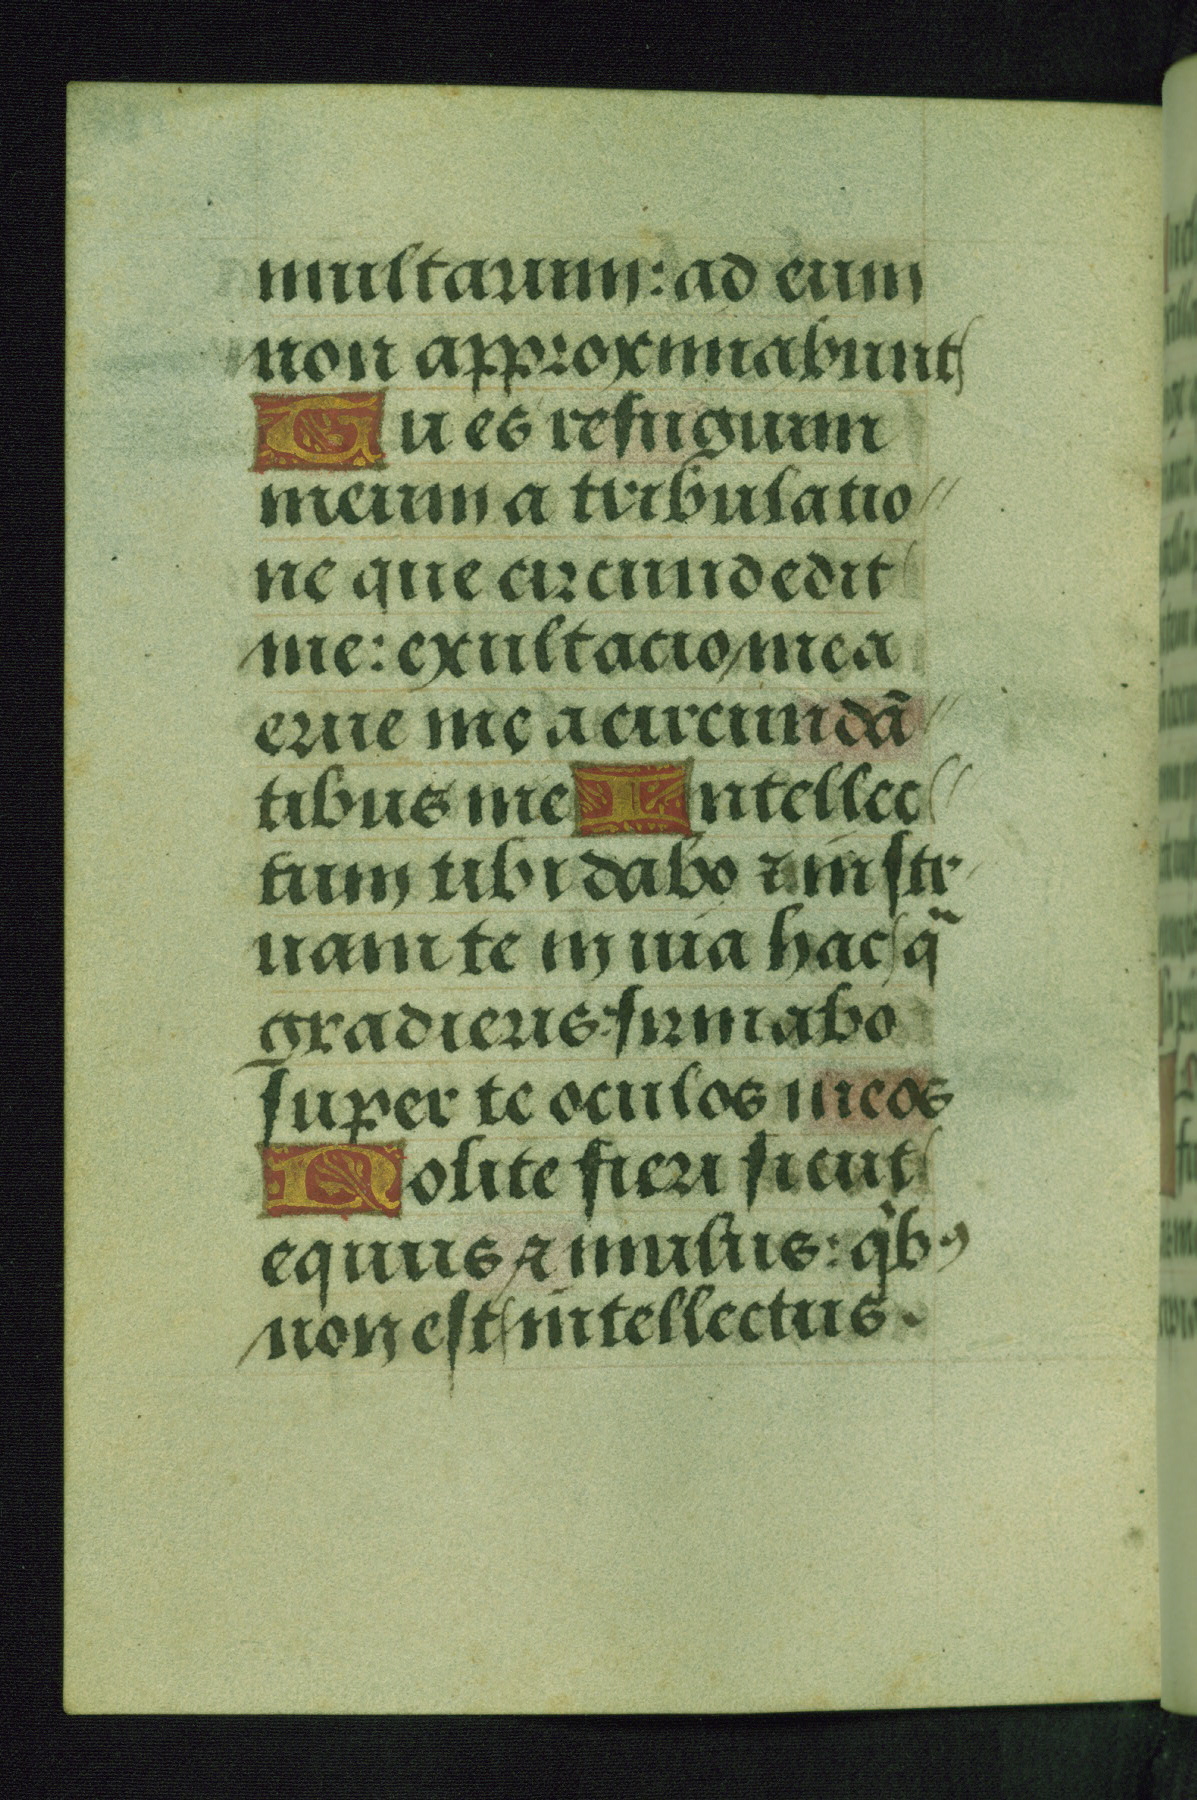 multarum: ad eum
non approximabunt
Tu es refugium
meum a tribulatio
ne que circundedit
me: exultacio mea
erue me a circundā
tibus me Intellec
tum tibi dabo ⁊ instr
uam te in uia hac q̄
gradieris: firmabo
super te oculos meos
Nolite fieri sicut
equus ⁊ mulus: qͥbꝰ
non est intellectus.